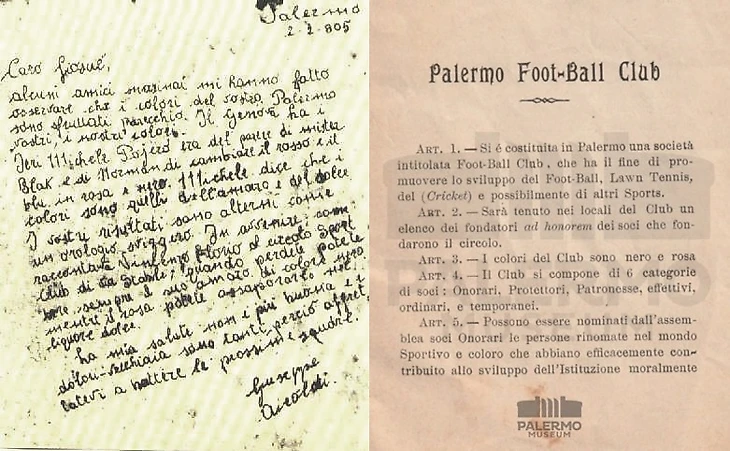 Palermo
2-2-905
Caro Giosuè,
alcuni amici marinai mi hanno fatto
osservare che i colori del vostro Palermo
sono sfruttati parecchio. Il Genova ha i
vostri, i nostri colori.
Ieri Michele Pojero era del parere di mister
Blak e di Normandi cambiare il rosso e il
blu in rosa e nero. Michele dice che i
colori sono quelli dell'amaro e del dolce
I vostri risultati sono alterni come
un orologio svizzero. In avvenire, come
raccontava Vincenzo Florio al circolo Sport
Club di la Stanti, quando perdete potete
bere sempre il suo amaro di color nero
mentre il rosa potete assaporarlo nel
liquore dolce.
ha mia salute non è più buona e i
dolori-vecchiaia sono tanti perciò affret
tatevi a battere le prossime squadre.
Giuseppe
Airoldi.
Palermo Foot-Ball Club
ART. 1. — Si é costituita in Palermo una società
intitolata Foot-Ball Club, che ha il fine di pro-
muovere lo sviluppo del Foot-Ball, Lawn Tennis,
del (Cricket) e possibilmente di altri Sports.
ART. 2. — Sarà tenuto nei locali del Club un
elenco dei fondatori ad honorem dei soci che fon-
darono il circolo.
ART. 3. — I colori del Club sono nero e rosa
ART. 4. — Il Club si compone di 6 categorie
di soci: Onorari, Protettori, Patronesse, effettivi,
ordinari, e temporanei.
ART. 5. — Possono essere nominati dall'assem-
blea soci Onorari le persone rinomate nel mondo
Sportivo e coloro che abbiano efficacemente con-
tribuito allo sviluppo dell'Istituzione moralmente
PALERMO
MUSEUM
PALERMO
MUSEUM